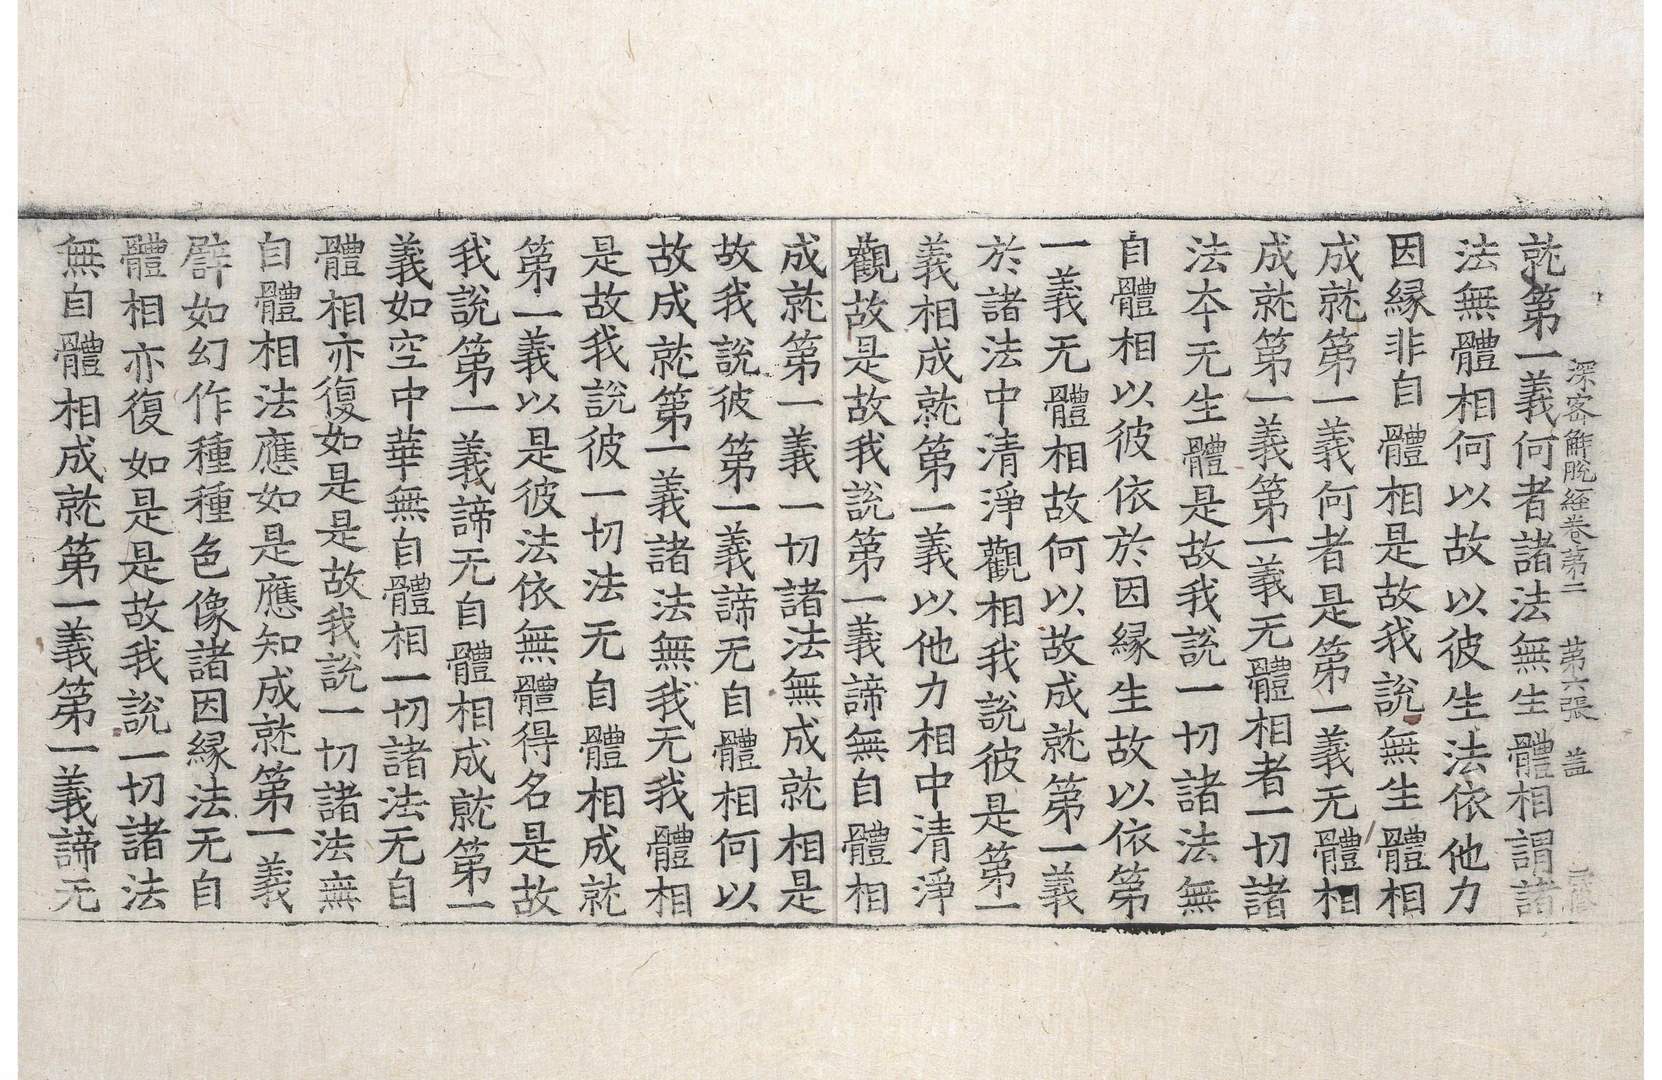 深密解脫經卷第二　第六張　盖
就第一義何者諸法無生體相謂諸
法無體相何以故以彼生法依他力
因縁非自體相是故我說無生體相
成就第一義何者是第一義无體相
成就第一義第一義无體相者一切諸
法夲无生體是故我說一切諸法無
自體相以彼依於因縁生故以依第
一義无體相故何以故成就第一義
於諸法中清淨觀相我說彼是第一
義相成就第一義以他力相中清淨
觀故是故我說第一義諦無自體相
成就第一義一切諸法無成就相是
故我說彼第一義諦无自體相何以
故成就第一義諸法無我无我體相
是故我說彼一切法无自體相成就
第一義以是彼法依無體得名是故
我說第一義諦无自體相成就第一
義如空中華無自體相一切諸法无自
體相亦復如是是故我說一切諸法無
自體相法應如是應知成就第一義
譬如幻作種種色像諸因縁法无自
體相亦復如是是故我說一切諸法
無自體相成就第一義第一義諦无